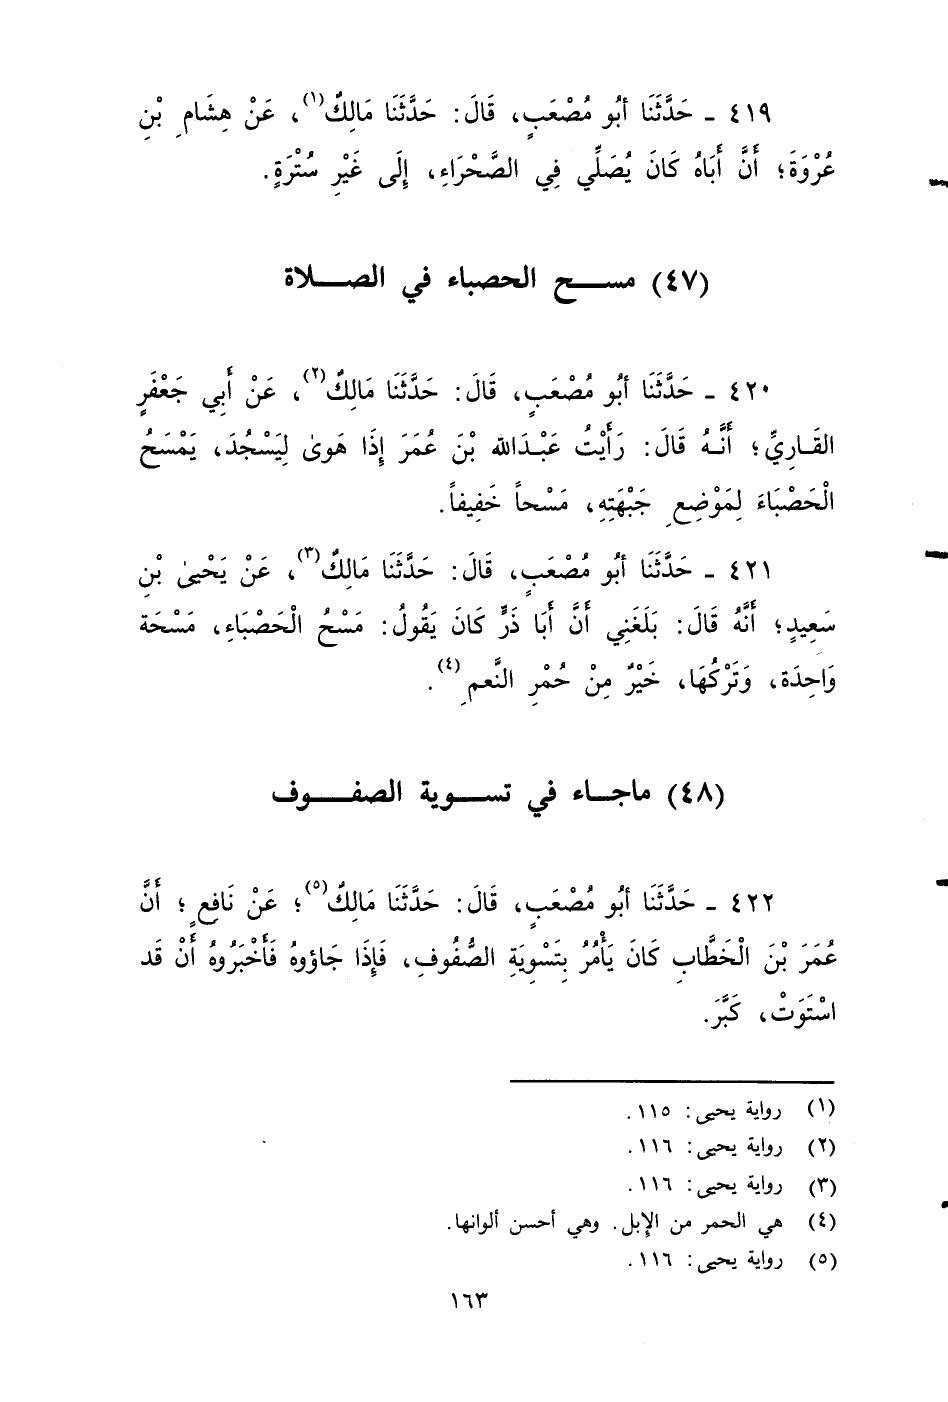 ٤١٩ ـ حَدَّثَنَا أبُو مُصْعَبٍ، قَالَ: حَدَّثَنَا مَالِكٌ(١)، عَنْ هِشَامِ بْنِ
عُرْوَةَ؛ أَنَّ أَبَاهُ كَانَ يُصَلِّي فِي الصَّحْرَاءِ، إِلَى غَيْرِ سُتْرَةٍ.
(٤٧) مســـح الحصباء في الصـــلاة
٤٢٠ ـ حَدَّثَنَا أبُو مُصْعَبٍ، قَالَ: حَدَّثَنَا مَالِكٌ(٢)، عَنْ أَبِي جَعْفَرٍ
القَـارِيِّ؛ أَنَّـهُ قَالَ: رَأَيْتُ عَبْـدَالله بْنَ عُمَرَ إِذَا هَوىٰ لِيَسْجُدَ، يَمْسَحُ
الْحَصْبَاءَ لِمَوْضِعِ جَبْهَتِهِ، مَسْحاً خَفِيفاً.
٤٢١ ـ حَدَّثَنَا أبُو مُصْعَبٍ، قَالَ: حَدَّثَنَا مَالِكٌ(٣)، عَنْ يَحْيىٰ بْنِ
سَعِيدٍ؛ أَنَّهُ قَالَ: بَلَغَنِي أَنَّ أَبَا ذَرٍّ كَانَ يَقُولُ: مَسْحُ الْحَصْبَاءِ، مَسْحَة
وَاحِدَة، وَتَرْكُهَا، خَيْرٌ مِنْ حُمْرِ النَّعمِ(٤).
(٤٨) ماجـــاء في تســـوية الصفـــوف
٤٢٢ ـ حَدَّثَنَا أبُو مُصْعَبٍ، قَالَ: حَدَّثَنَا مَالِكٌ(٥)؛ عَنْ نَافِعٍ؛ أَنَّ
عُمَرَ بْنَ الْخَطَّابِ كَانَ يَأْمُرُ بِتَسْوِيَةِ الصُّفُوفِ، فَإِذَا جَاؤوهُ فَأَخْبَرُوهُ أَنْ قَد
اسْتَوَتْ، كَبَّرَ.
(١) رواية يحيى: ١١٥.
(٢) رواية يحيى: ١١٦.
(٣) رواية يحيى: ١١٦.
(٤) هي الحمر من الإبل. وهي أحسن ألوانها.
(٥) رواية يحيى: ١١٦.
١٦٣